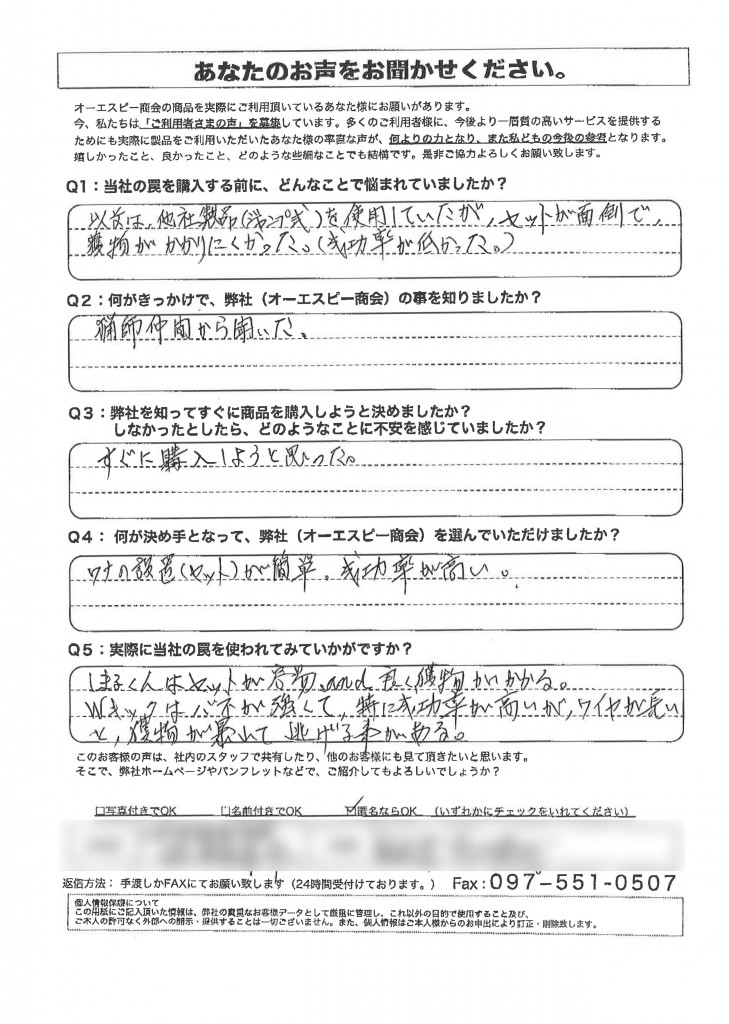 あなたのお声をお聞かせください。
オーエスピー商会の商品を実際にご利用頂いているあなた様にお願いがあります。
今、私たちは「ご利用者さまの声」を募集しています。多くのご利用者様に、今後より一層質の高いサービスを提供する
ためにも実際に製品をご利用いただいたあなた様の率直な声が、何よりの力となり、また私どもの今後の参考となります。
嬉しかったこと、良かったこと、どのような些細なことでも結構です。是非ご協力よろしくお願い致します。
Q1：当社の罠を購入する前に、どんなことで悩まれていましたか？
以前は、他社製品(ジャンプ式)を使用していたが、セットが面倒で、
獲物がかかりにくかった。(成功率が低かった。)
Q2：何がきっかけで、弊社（オーエスピー商会）の事を知りましたか？
猟師仲間から聞いた。
Q3：弊社を知ってすぐに商品を購入しようと決めましたか？
しなかったとしたら、どのようなことに不安を感じていましたか？
すぐに購入しようと思った。
Q4： 何が決め手となって、弊社（オーエスピー商会）を選んでいただけましたか？
ワナの設置(セット)が簡単。成功率が高い。
Q5：実際に当社の罠を使われてみていかがですか？
しまるくんはセットが容易 and 良く獲物がかかる。
Wキックはバネが強くて、特に成功率が高いが、ワイヤが長い
と、獲物が暴れて逃げる事がある。
このお客様の声は、社内のスタッフで共有したり、他のお客様にも見て頂きたいと思います。
そこで、弊社ホームページやパンフレットなどで、ご紹介してもよろしいでしょうか？
□写真付きでOK　□名前付きでOK　☑匿名ならOK　（いずれかにチェックをいれてください）
返信方法： 手渡しかFAXにてお願い致します（24時間受付けております。） Fax：097-551-0507
個人情報保護について
この用紙にご記入頂いた情報は、弊社の貴重なお客様データとして厳重に管理し、これ以外の目的で使用すること及び、
ご本人の許可なく外部への開示・提供することは一切ございません。また、個人情報はご本人様からのお申出により訂正・削除致します。